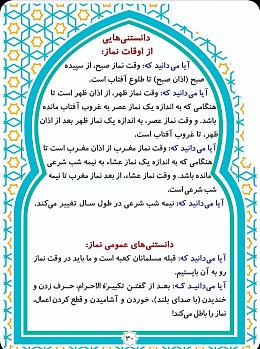 دانستنی‌هایی
از اوقات نماز:
آیا می‌دانید که: وقت نماز صبح، از سپیده
صبح (اذان صبح) تا طلوع آفتاب است.
آیا می‌دانید که: وقت نماز ظهر، از اذان ظهر است تا
هنگامی که به اندازه یک نماز عصر به غروب آفتاب مانده
باشد. و وقت نماز عصر، به اندازه یک نماز ظهر بعد از اذان
ظهر، تا غروب آفتاب است.
آیا می‌دانید که: وقت نماز مغرب از اذان مغرب است تا
هنگامی که به اندازه یک نماز عشاء به نیمه شب شرعی
مانده باشد. و وقت نماز عشاء، از بعد نماز مغرب تا نیمه
شب شرعی است.
آیا می‌دانید که: نیمه شب شرعی در طول سال تغییر می‌کند.
دانستنی‌های عمومی نماز:
آیا می‌دانید که: قبله مسلمانان کعبه است و ما باید در وقت نماز
رو به آن بایستیم.
آیا می‌دانید که: بعد از گفتن تکبیرة الاحرام، حرف زدن و
خندیدن (با صدای بلند)، خوردن و آشامیدن و قطع کردن اعمال،
نماز را باطل می‌کند!
۳۰